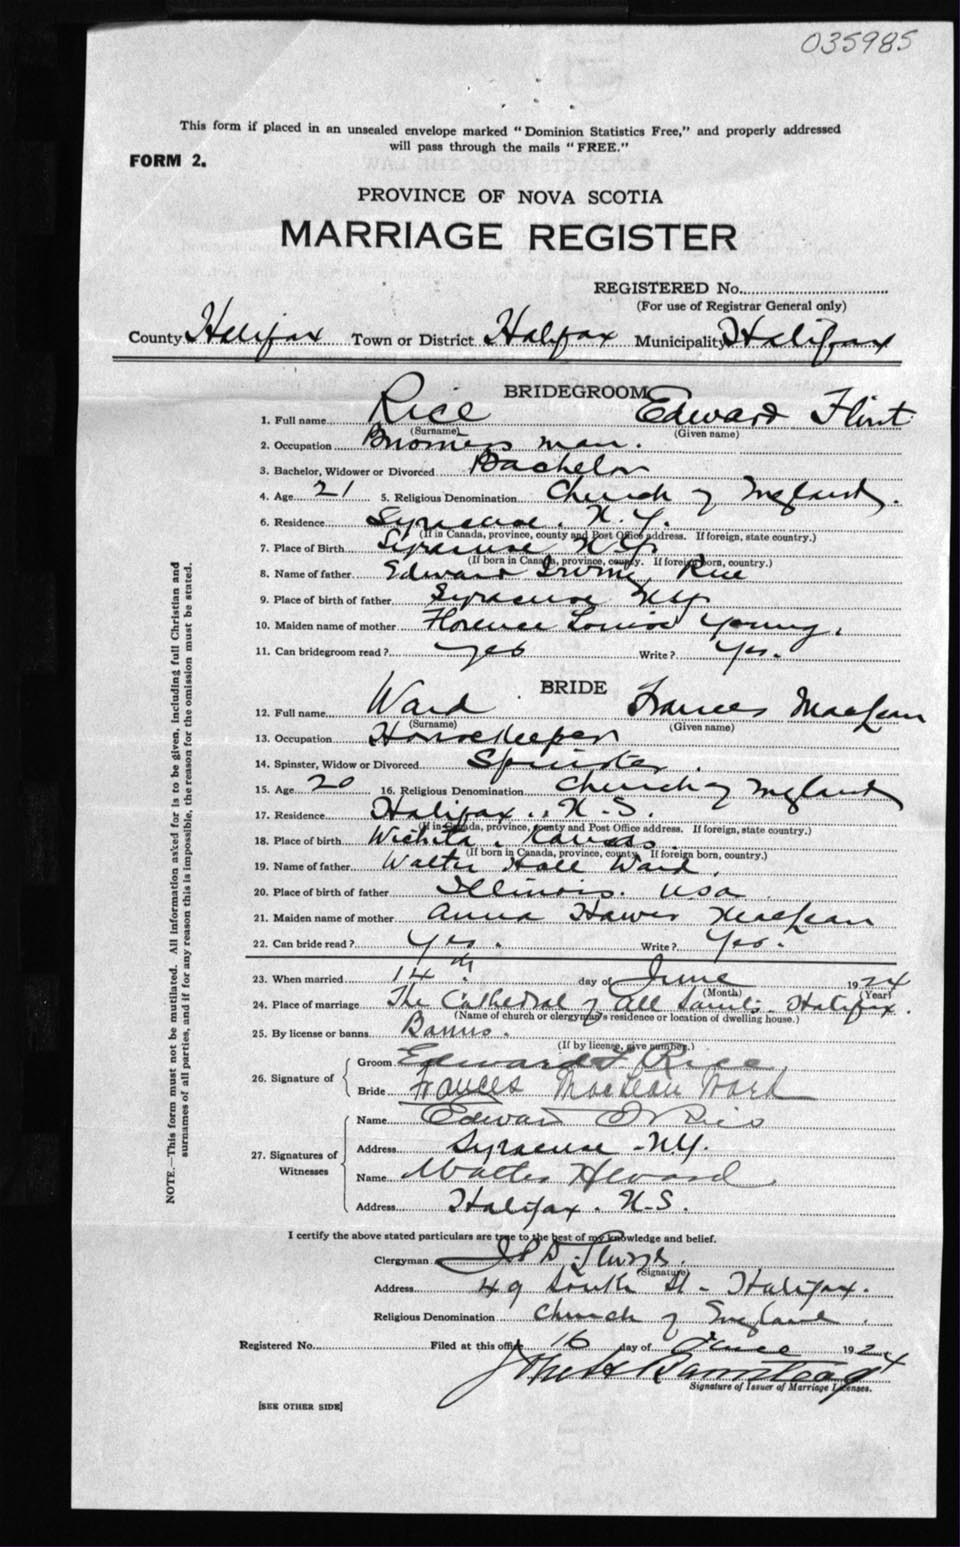 035985
This form if placed in an unsealed envelope marked "Dominion Statistics Free," and properly addressed
will pass through the mails "FREE."
FORM 2.
PROVINCE OF NOVA SCOTIA
MARRIAGE REGISTER
REGISTERED No.
(For use of Registrar General only)
County Halifax Town or District Halifax Municipality Halifax
BRIDEGROOM
1. Full name Rice Edward Flint
(Surname) (Given name)
2. Occupation Business man.
3. Bachelor, Widower or Divorced Bachelor
4. Age 21 5. Religious Denomination Church of England.
6. Residence Syracuse. N.Y.
(If in Canada, province, county and Post Office address. If foreign, state country.)
7. Place of Birth Syracuse N.Y.
(If born in Canada, province, county. If foreign born, country.)
8. Name of father Edward Irving Rice
9. Place of birth of father Syracuse N.Y.
10. Maiden name of mother Florence Louise Young.
11. Can bridegroom read? Yes Write? Yes.
BRIDE
12. Full name Ward Frances MacLean
(Surname) (Given name)
13. Occupation Housekeeper
14. Spinster, Widow or Divorced Spinster.
15. Age 20 16. Religious Denomination Church of England
17. Residence Halifax.. N.S.
(If in Canada, province, county and Post Office address. If foreign, state country.)
18. Place of birth Wichita. Kansas.
(If born in Canada, province, county. If foreign born, country.)
19. Name of father Walter Hall Ward.
20. Place of birth of father Illinois. USA
21. Maiden name of mother Anna Hawes MacLean
22. Can bride read? Yes. Write? Yes.
23. When married 14th. day of June 1924
(Month) (Year)
24. Place of marriage The Cathedral of All Saints. Halifax.
(Name of church or clergyman's residence or location of dwelling house.)
25. By license or banns Banns.
(If by license, give number.)
26. Signature of
Groom Edward F. Rice
Bride Frances MacLean Ward
27. Signatures of Witnesses
Name Edward I Rice
Address Syracuse - N.Y.
Name Walter H Ward
Address Halifax. N.S.
I certify the above stated particulars are true to the best of my knowledge and belief.
Clergyman
(Signature)
Address 49 South St - Halifax.
Religious Denomination Church of England.
Registered No. Filed at this office 16 day of June 1924
John H Barnstead
Signature of Issuer of Marriage Licenses.
[SEE OTHER SIDE]
NOTE.—This form must not be mutilated. All information asked for is to be given, including full Christian and
surnames of all parties, and if for any reason this is impossible, the reason for the omission must be stated.